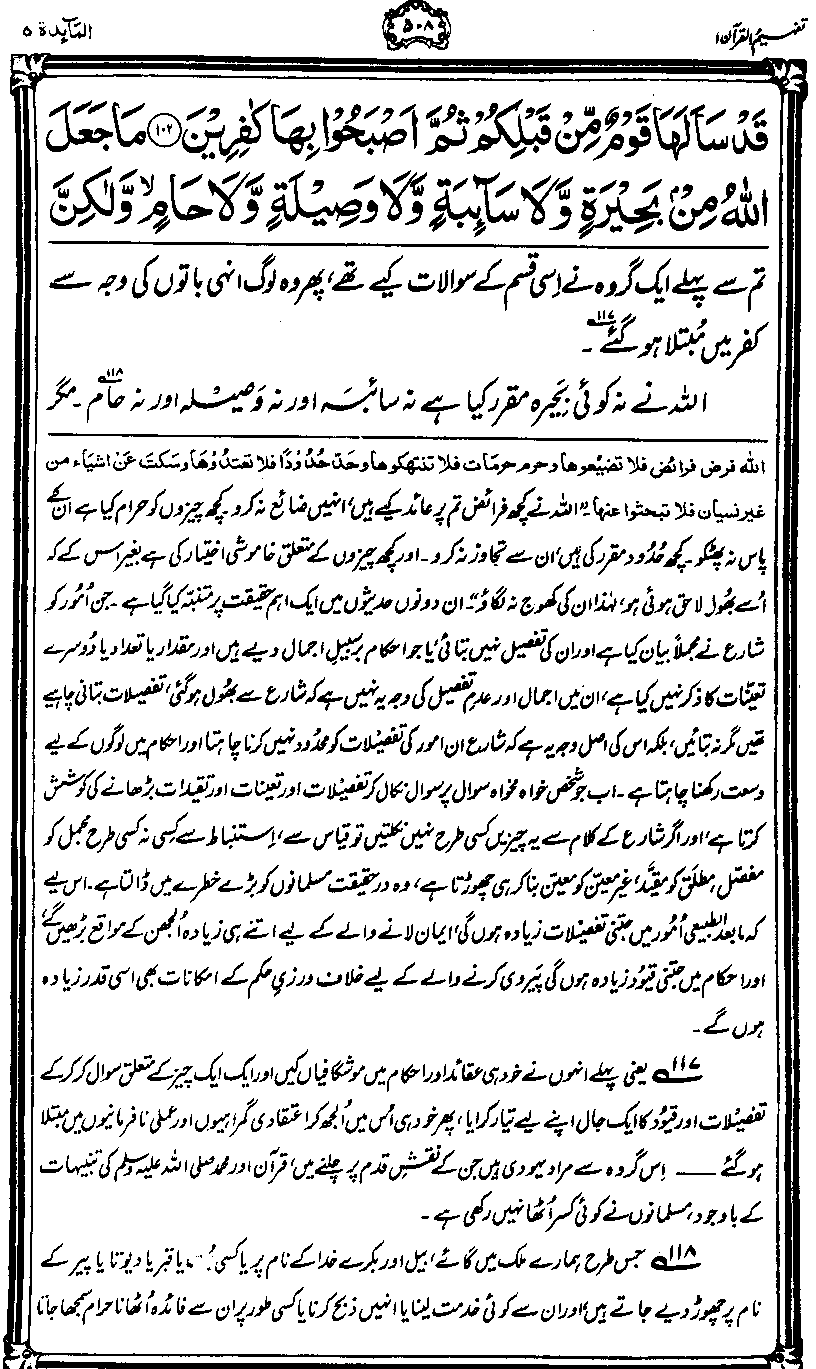 تفہیم القرآن ۱
۵۰۸
المآئدۃ ۵
قَدْ سَاَلَهَا قَوْمٌ مِّنْ قَبْلِكُمْ ثُمَّ اَصْبَحُوْا بِهَا كٰفِرِيْنَ ۝۱۰۲ مَا جَعَلَ
اللّٰهُ مِنْۢ بَحِيْرَةٍ وَّلَا سَآئِبَةٍ وَّلَا وَصِيْلَةٍ وَّلَا حَامٍ ۙ وَّلٰكِنَّ
تم سے پہلے ایک گروہ نے اِسی قسم کے سوالات کیے تھے، پھر وہ لوگ انہی باتوں کی وجہ سے
کفر میں مُبتلا ہو گئے ۱۱۷۔
اللہ نے نہ کوئی بَحِیرہ مقرر کیا ہے نہ سائبہ اور نہ وَصِیلہ اور نہ حام ۱۱۸۔ مگر
الله فرض فرائض فلا تضيعوها وحرم حرمات فلا تنتهكوها وحدّ حُدُودًا فلا تعتدُوْهَا وسَكتَ عَنْ اشياء من
غير نسيان فلا تبحثوا عنها“ ”اللہ نے کچھ فرائض تم پر عائد کیے ہیں، انہیں ضائع نہ کرو۔ کچھ چیزوں کو حرام کیا ہے ان کے
پاس نہ پھٹکو۔ کچھ حُدُود مقرر کی ہیں، ان سے تجاوز نہ کرو۔ اور کچھ چیزوں کے متعلق خاموشی اختیار کی ہے بغیر اس کے کہ
اُسے بُھول لاحق ہوئی ہو، لہٰذا ان کی کھوج نہ لگاؤ“۔ ان دونوں حدیثوں میں ایک اہم حقیقت پر متنبّہ کیا گیا ہے۔ جن اُمور کو
شارع نے مجملاً بیان کیا ہے اور ان کی تفصیل نہیں بتائی، یا جو احکام برسبیلِ اجمال دیے ہیں اور مقدار یا تعداد یا دُوسرے
تعیّنات کا ذکر نہیں کیا ہے، ان میں اجمال اور عدمِ تفصیل کی وجہ یہ نہیں ہے کہ شارع سے بھُول ہو گئی، تفصیلات بتانی چاہیے
تھیں مگر نہ بتائیں، بلکہ اس کی اصل وجہ یہ ہے کہ شارع ان امور کی تفصیلات کو محدُود نہیں کرنا چاہتا اور احکام میں لوگوں کے لیے
وسعت رکھنا چاہتا ہے۔ اب جو شخص خواہ مخواہ سوال پر سوال نکال کر تفصیلات اور تعینات اور تقیدات بڑھانے کی کوشش
کرتا ہے، اور اگر شارع کے کلام سے یہ چیزیں کسی طرح نہیں نکلتیں تو قیاس سے، اِستنباط سے کسی نہ کسی طرح مجمل کو
مفصّل، مطلق کو مقیَّد، غیر معین کو معین بنا کر ہی چھوڑتا ہے، وہ درحقیقت مسلمانوں کو بڑے خطرے میں ڈالتا ہے۔ اس لیے
کہ ما بعد الطبیعی اُمُور میں جتنی تفصیلات زیادہ ہوں گی، ایمان لانے والے کے لیے اتنے ہی زیادہ اُلجھن کے مواقع بڑھیں گے،
اور احکام میں جتنی قیُود زیادہ ہوں گی پَیروی کرنے والے کے لیے خلاف ورزیِ حکم کے امکانات بھی اسی قدر زیادہ
ہوں گے۔
۱۱۷ یعنی پہلے انہوں نے خود ہی عقائد اور احکام میں موشگافیاں کیں اور ایک ایک چیز کے متعلق سوال کر کر کے
تفصیلات اور قیُود کا ایک جال اپنے لیے تیار کرایا، پھر خود ہی اُس میں اُلجھ کر اعتقادی گمراہیوں اور عملی نافرمانیوں میں مبتلا
ہو گئے —— اِس گروہ سے مراد یہودی ہیں جن کے نقشِ قدم پر چلنے میں، قرآن اور محمد صلی اللہ علیہ وسلم کی تنبیہات
کے باوجود، مسلمانوں نے کوئی کسر اُٹھا نہیں رکھی ہے۔
۱۱۸ جس طرح ہمارے ملک میں گائے، بیل اور بکرے خدا کے نام پر یا کسی یا قبر یا دیوتا یا پیر کے
نام پر چھوڑ دیے جاتے ہیں، اور ان سے کوئی خدمت لینا یا انہیں ذبح کرنا یا کسی طور پر ان سے فائدہ اُٹھانا حرام سمجھا جاتا